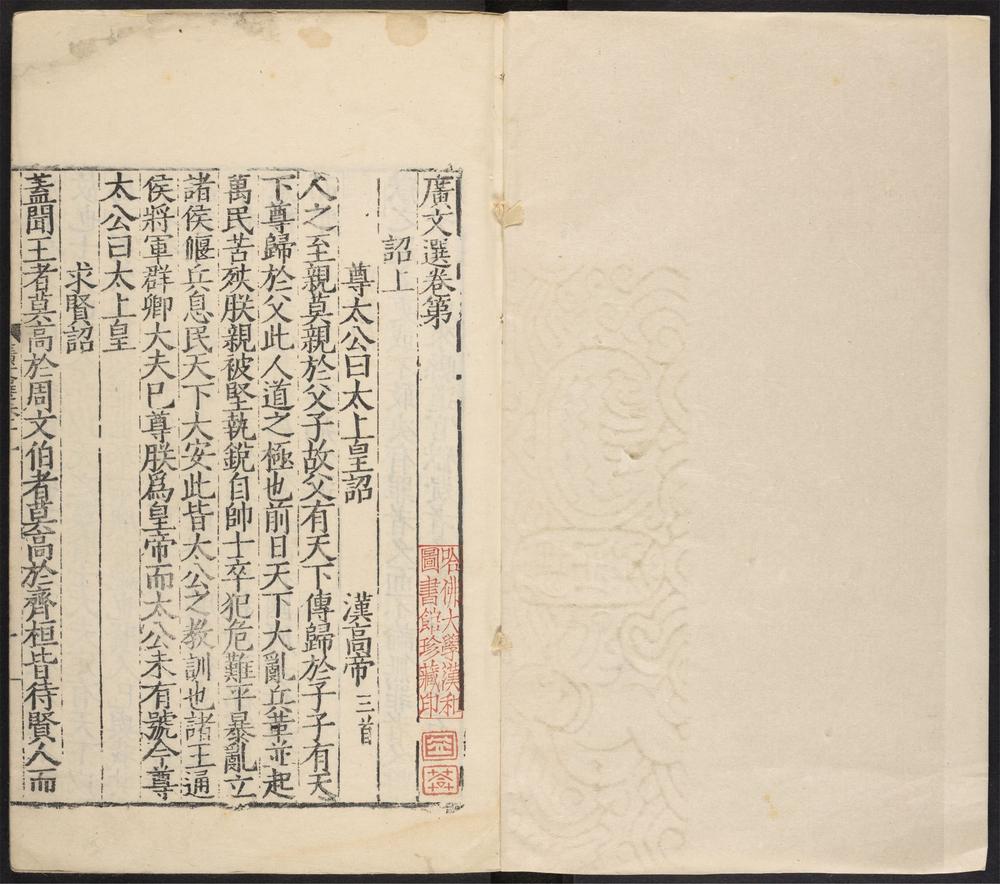 廣文選卷第
詔上
尊太公曰太上皇詔 漢高帝 三首
人之至親莫親於父子故父有天下傳歸於子子有天
下尊歸於父此人道之極也前日天下大亂兵革並起
萬民苦殃朕親被堅執銳自帥士卒犯危難平暴亂立
諸侯偃兵息民天下大安此皆太公之教訓也諸王通
侯將軍群卿大夫已尊朕爲皇帝而太公未有號今尊
太公曰太上皇
求賢詔
蓋聞王者莫高於周文伯者莫高於齊桓皆待賢人而
哈佛大學漢和
圖書館珍藏印